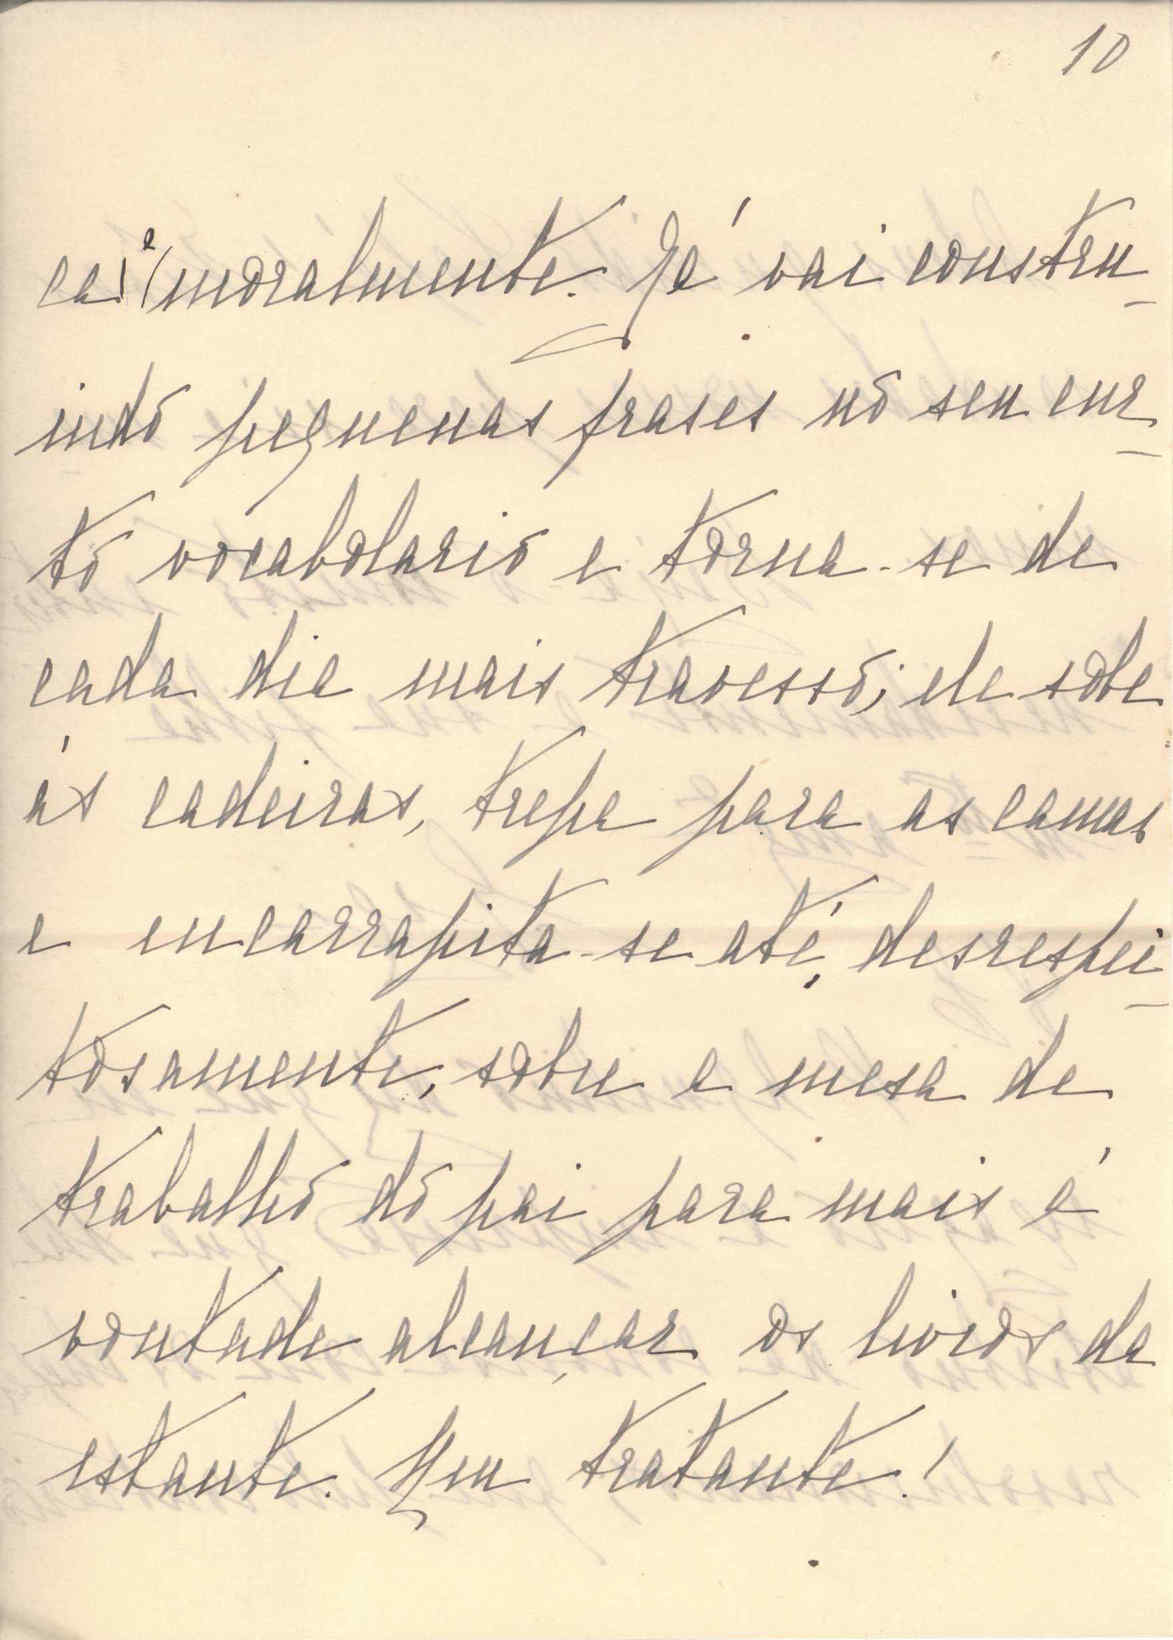 10
ca e moralmente. Já vai constru_
indo pequenas frases no seu cur_
to vocabolario e torna-se de
cada dia mais travesso; ele sobe
ás cadeiras, trepa para as camas
e encarrapita-se até, desrespei_
tosamente, sobre a mesa de
trabalho do pai para mais á
vontade alcançar os livros da
estante. Um tratante!